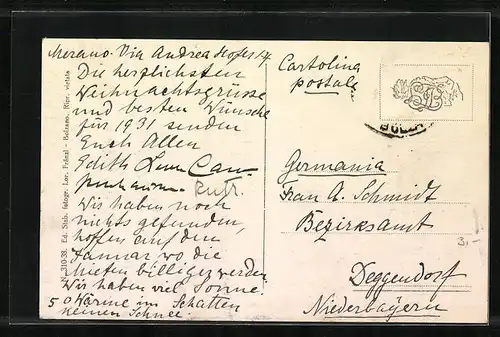 Merano. Via Andrea Hofer 14
Die herzlichsten
Weihnachtsgrüsse
und besten Wünsche
für 1931 senden
Euch Allen
Edith
Ruth.
Wir haben noch
nichts gefunden,
hoffen auf den
Januar wo die
Mieten billiger werden
Wir haben viel Sonne.
5 0 Wärme im Schatten
keinen Schnee.
Cartolina
postale
Germania
Frau A. Schmidt
Bezirksamt
Deggendorf
Niederbayern
3.-
310-38. Ed. Stab. fotogr. Lor. Fränzl - Bolzano. Ripr. vietata